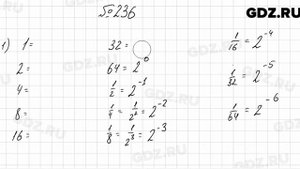 GDZ.RU
№236
1) 1=
2=
4=
8=
16=
32=
64=2⁶
1/2=2⁻¹
1/4=1/2²=2⁻²
1/8=1/2³=2⁻³
1/16=2⁻⁴
1/32=2⁻⁵
1/64=2⁻⁶
GDZ.RU